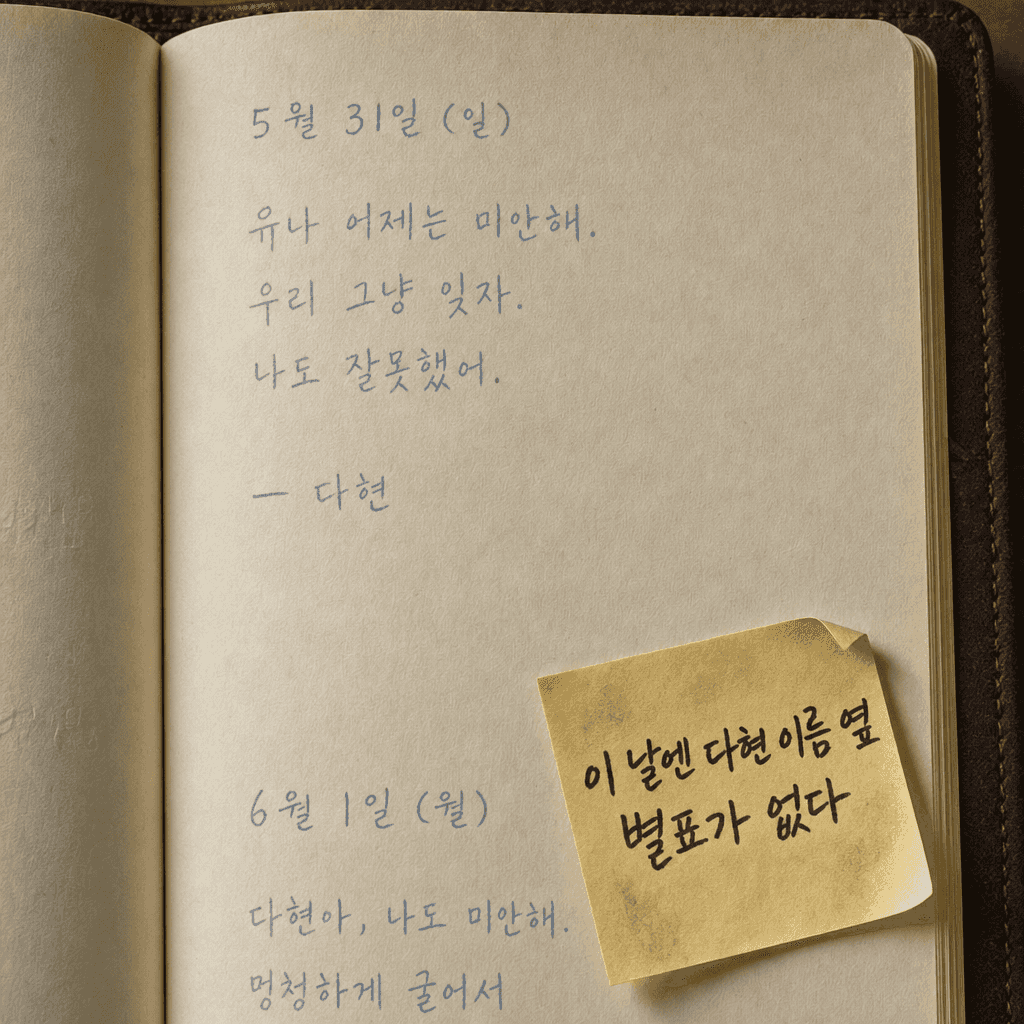 5월 31일 (일)
유나 어제는 미안해.
우리 그냥 잊자.
나도 잘못했어.
— 다현
이 날엔 다현 이름 옆
별표가 없다
6월 1일 (월)
다현아, 나도 미안해.
멍청하게 굴어서